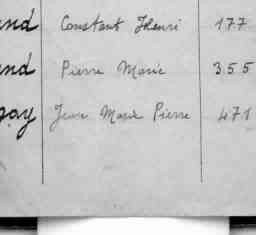 nd Constant Henri 177
nd Pierre Marie 355
gay Jean Marie Pierre 471